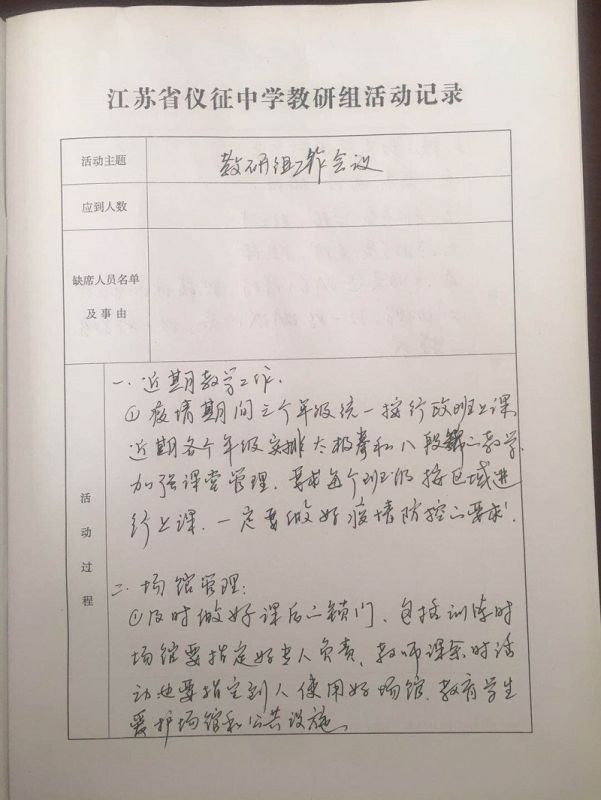 江苏省仪征中学教研组活动记录
活动主题
教研组工作会议
应到人数
缺席人员名单
及事由
活动过程
一、近期教学工作.
①疫情期间三个年级统一按行政班上课
近期各个年级安排太极拳和八段锦的教学.
加强课堂管理,要求每个班级按区域进
行上课.一定要做好疫情防控的要求.
二、场馆管理:
①及时做好课后的锁门、包括训练时
场馆要指定好专人负责,教师课余时活
动也要指定到人使用好场馆.教育学生
爱护场馆和公共设施.